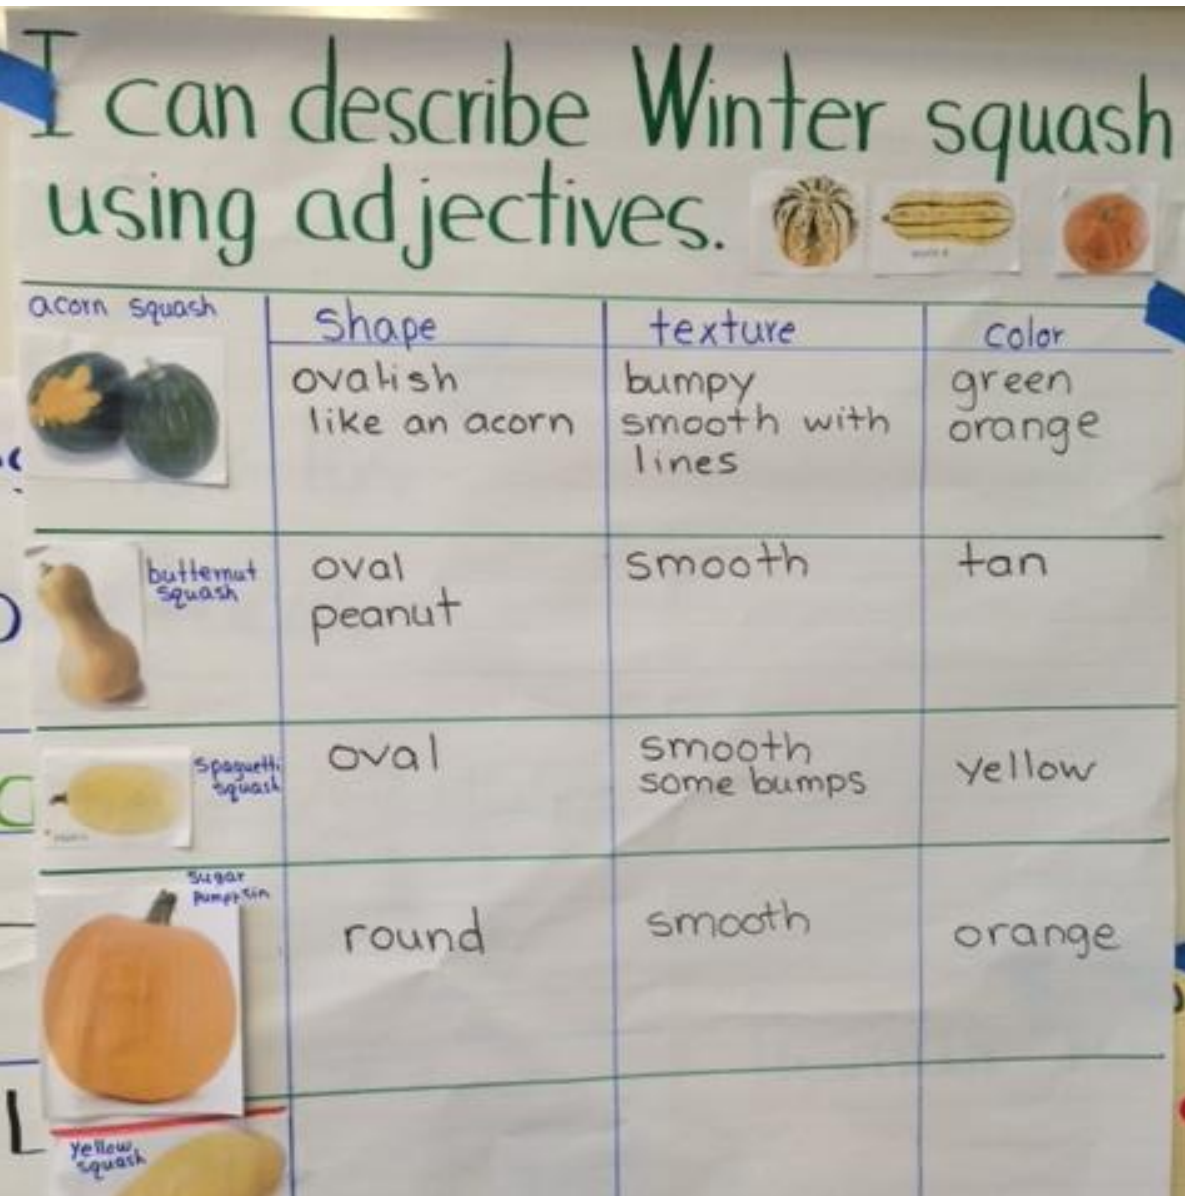 I can describe Winter squash
using adjectives.
acorn squash
shape
texture
color
ovalish
like an acorn
bumpy
smooth with
lines
green
orange
butternut
squash
oval
peanut
smooth
tan
spaguetti
squash
oval
smooth
some bumps
yellow
sugar
pumpkin
round
smooth
orange
yellow
squash